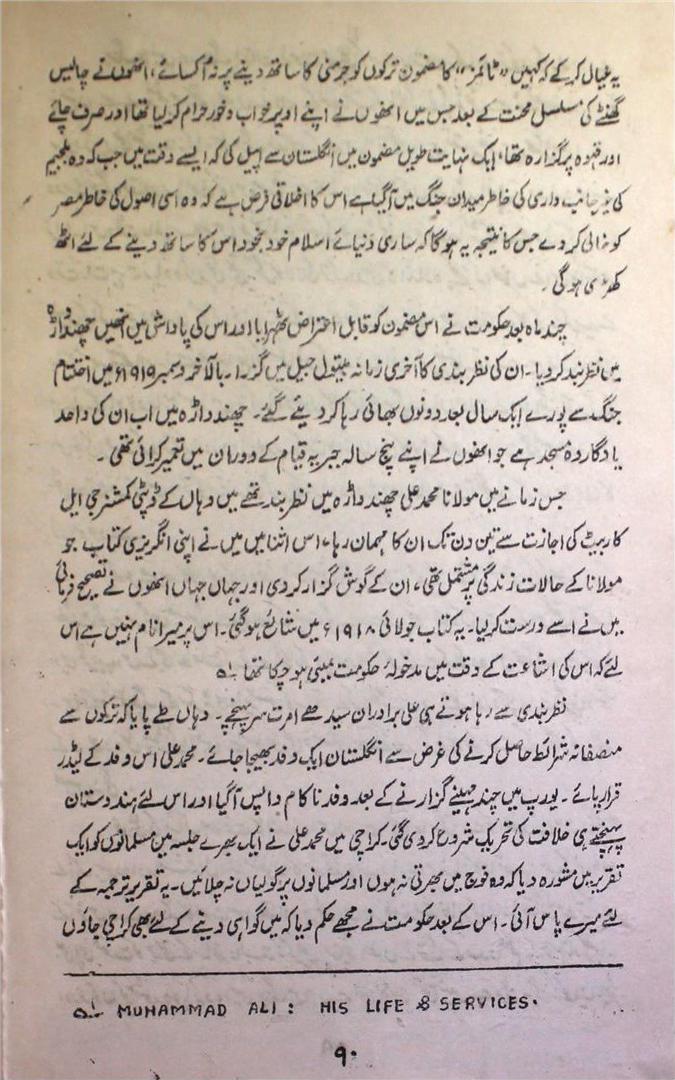 یہ خیال کر کے کہ کہیں "ٹائمز" کا مضمون ترکوں کو جرمنی کا ساتھ دینے پر نہ اکسائے، انھوں نے چالیس
گھنٹے کی مسلسل محنت کے بعد جس میں انھوں نے اپنے اوپر خواب و خور حرام کر لیا تھا اور صرف چائے
اور قہوہ پر گزارہ تھا، ایک نہایت طویل مضمون میں انگلستان سے اپیل کی کہ ایسے وقت میں جب کہ وہ بلجیم
کی غیر جانب داری کی خاطر میدان جنگ میں آ گیا ہے اس کا اخلاقی فرض ہے کہ وہ اسی اصول کی خاطر مصر
کو خالی کر دے جس کا نتیجہ یہ ہو گا کہ ساری دنیائے اسلام خود بخود اس کا ساتھ دینے کے لئے اٹھ
کھڑی ہو گی۔
چند ماہ بعد حکومت نے اس مضمون کو قابل اعتراض ٹھہرایا اور اس کی پاداش میں انھیں چھنداواڑہ
میں نظر بند کر دیا۔ ان کی نظر بندی کا آخری زمانہ بیتول جیل میں گزرا۔ بالآخر دسمبر ۱۹۱۹ء میں اختتام
جنگ سے پورے ایک سال بعد دونوں بھائی رہا کر دیئے گئے۔ چھند واڑہ میں اب ان کی واحد
یادگار وہ مسجد ہے جو انھوں نے اپنے پنج سالہ جبریہ قیام کے دوران میں تعمیر کرائی تھی۔
جس زمانے میں مولانا محمد علی چھند واڑہ میں نظر بند تھے میں وہاں کے ڈپٹی کمشنر جی ایل
کاربیٹ کی اجازت سے تین دن تک ان کا مہمان رہا، اس اثنا میں میں نے اپنی انگریزی کتاب جو
مولانا کے حالات زندگی پر مشتمل تھی، ان کے گوش گزار کر دی اور جہاں جہاں انھوں نے تصحیح فرمائی
میں نے اسے درست کر لیا۔ یہ کتاب جولائی ۱۹۱۸ء میں شائع ہو گئی۔ اس پر میرا نام نہیں ہے اس
لئے کہ اس کی اشاعت کے وقت میں مدخولۂ حکومت بمبئی ہو چکا تھا ؎۱
نظر بندی سے رہا ہوتے ہی علی برادران سیدھے امرت سر پہنچے۔ وہاں طے پایا کہ ترکوں سے
منصفانہ شرائط حاصل کرنے کی غرض سے انگلستان ایک وفد بھیجا جائے۔ محمد علی اس وفد کے لیڈر
قرار پائے۔ یورپ میں چند مہینے گزارنے کے بعد وفد ناکام واپس آ گیا اور اس لئے ہندوستان
پہنچتے ہی خلافت کی تحریک شروع کر دی گئی۔ کراچی میں محمد علی نے ایک بھرے جلسہ میں مسلمانوں کو ایک
تقریر میں مشورہ دیا کہ وہ فوج میں بھرتی نہ ہوں اور مسلمانوں پر گولیاں نہ چلائیں۔ یہ تقریر ترجمہ کے
لئے میرے پاس آئی۔ اس کے بعد حکومت نے مجھے حکم دیا کہ میں گواہی دینے کے لئے بھی کراچی جاؤں
؎۱ MUHAMMAD ALI: HIS LIFE & SERVICES.
۹۰